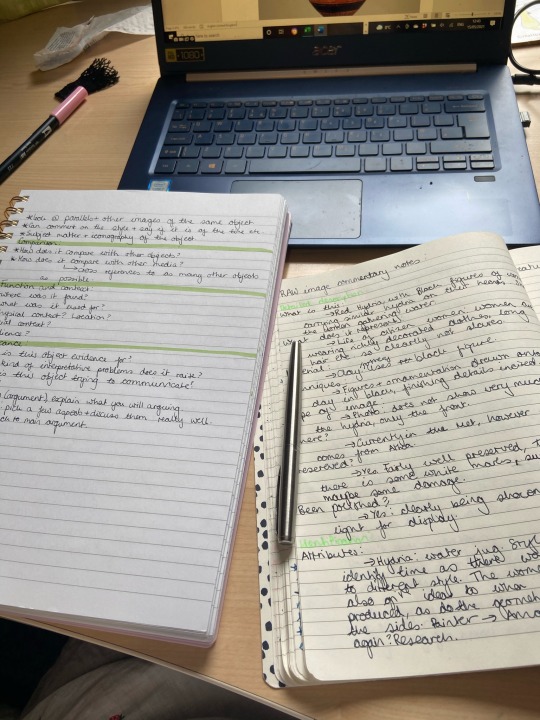 acer
1080
*Look @ parallels + other images of the same object
*Can comment on the style + say if it is of the time etc.
*Subject matter + iconography of the object
Comparison:
*How does it compare with other objects?
*How does it compare with other media?
→cross references to as many other objects
as possible
Function and context
where was it found?
what was it used for?
physical context? Location?
ial context?
ience?
cance
is this object evidence for?
kind of interpretative problems does it raise?
is this object trying to communicate?
(argument) explain what you will arguing
pick a few aspects + discuss them really well.
ach to main argument.
RAW image commentary notes:
What is this →Red Hydria with Black figures of
carrying similar hydria on their heads
the women gathering water.
What does it represent?
→Life of citizen women, women are
wearing richly decorated clothes, long
hair etc so clearly not slaves.
→Clay. Mixed → black figure.
→Figures + ornamentation drawn onto
clay in black, finishing details incised
pe of image. → Photo: does not show very much
the hydria, only the front.
here?
→Currently in the Met, however
comes from Attica
reserved?
→Yes. Fairly well preserved,
there is some white marks,
maybe some damage.
Been polished?
→Yes: clearly being shown
light for display.
Identification:
Attributes:
→Hydria: water jug. Style
identify time as there
to different style. The
also give idea to when
produced, as do the
the sides. Painter →
again? Research.